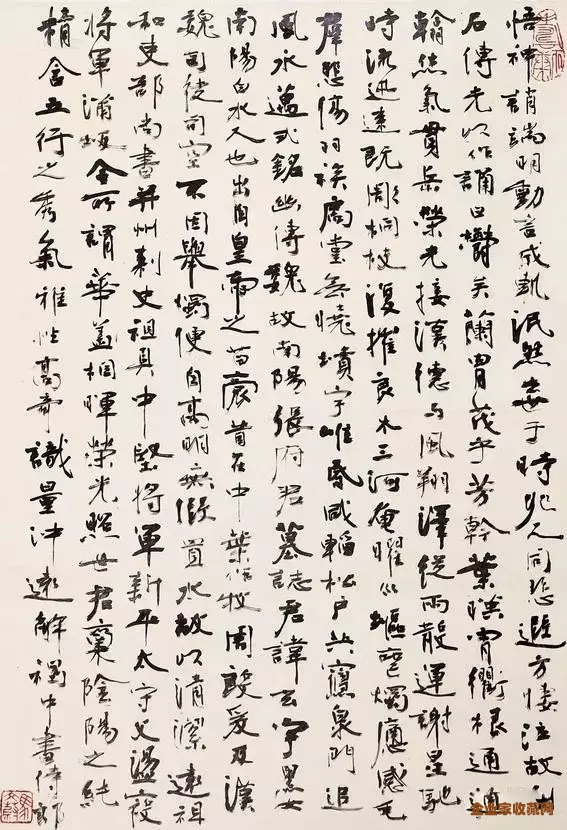 悟神誚端明動言成軌泯然去世于時兆人同悲遐方悽泣故刊
石傳光以作誦曰鬱矣蘭胄茂乎芳幹葉暎霄衢根通海
翰氣貫岳榮光接漢德与風翔澤從雨散運謝星馳
時流迅速既彫桐枝復摧良木三河奄曜巛塸喪燭痛感毛
羣悲傷羽族扃堂無曉墳宇唯昏咸韜松戶共寢泉門追
風永邁式銘幽傳魏故南陽張府君墓誌君諱玄字黑女
南陽白水人也出自皇帝之苗裔昔在中葉作牧周殷爰及漢
魏司徒司空不因舉燭便自高明無假置水故以清潔遠祖
和吏部尚書并州刺史祖具中堅將軍新平太守父盪寇
將軍蒲坂令所謂華蓋相暉榮光照世君稟陰陽之純
精含五行之秀氣雅性高奇識量沖遠解褐中書侍郎
企业家收藏网